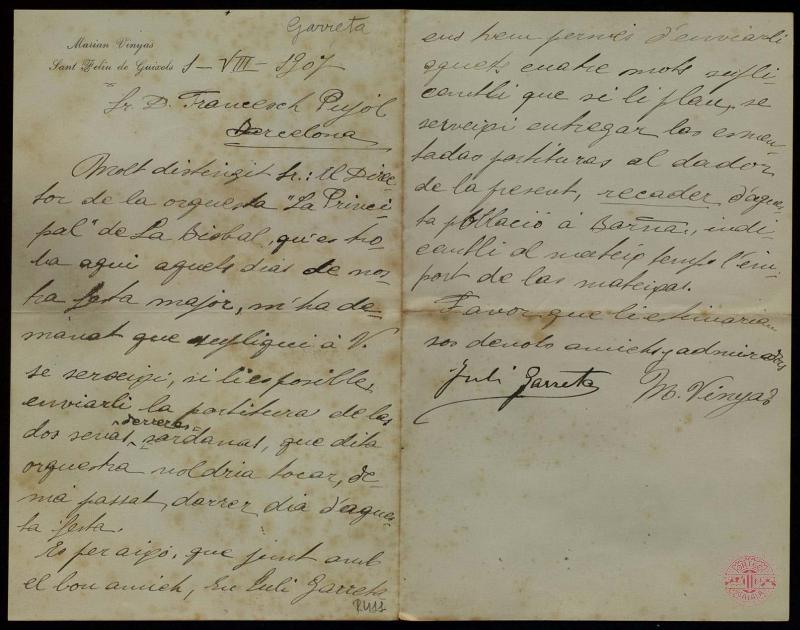 Garreta
Marian Vinyas
Sant Feliu de Guixols 1-VIII-1907
Sr. D. Francesch Pujol
Barcelona
Molt distingit Sr.: El Direc-
tor de la orquesta "La Princi-
pal" de La Bisbal, qu'es tro-
ba aqui aquets dias de nos-
tra festa major, m'ha de-
manat que supliqui á V.
se serveixi, si li es posible,
enviarli la partitura de las
derreras
dos sevas sardanas, que dita
orquestra voldria tocar, de-
má passat, darrer dia d'aques-
ta festa.
Es per aixó, que junt amb
el bon amich, En Juli Garreta
R.411
ens hem permés d'enviarli
aquets cuatre mots supli-
cantli que si li plau, se
serveixi entregar las esmen-
tadas partituras al dador
de la present, recader d'aques-
ta població á Barna., indi-
cantli al mateix temps l'im-
port de las mateixas.
Favor que li estimarian
sos devots amichs y admiradors
Juli Garreta M. Vinyas
ORFEÓ CATALÀ